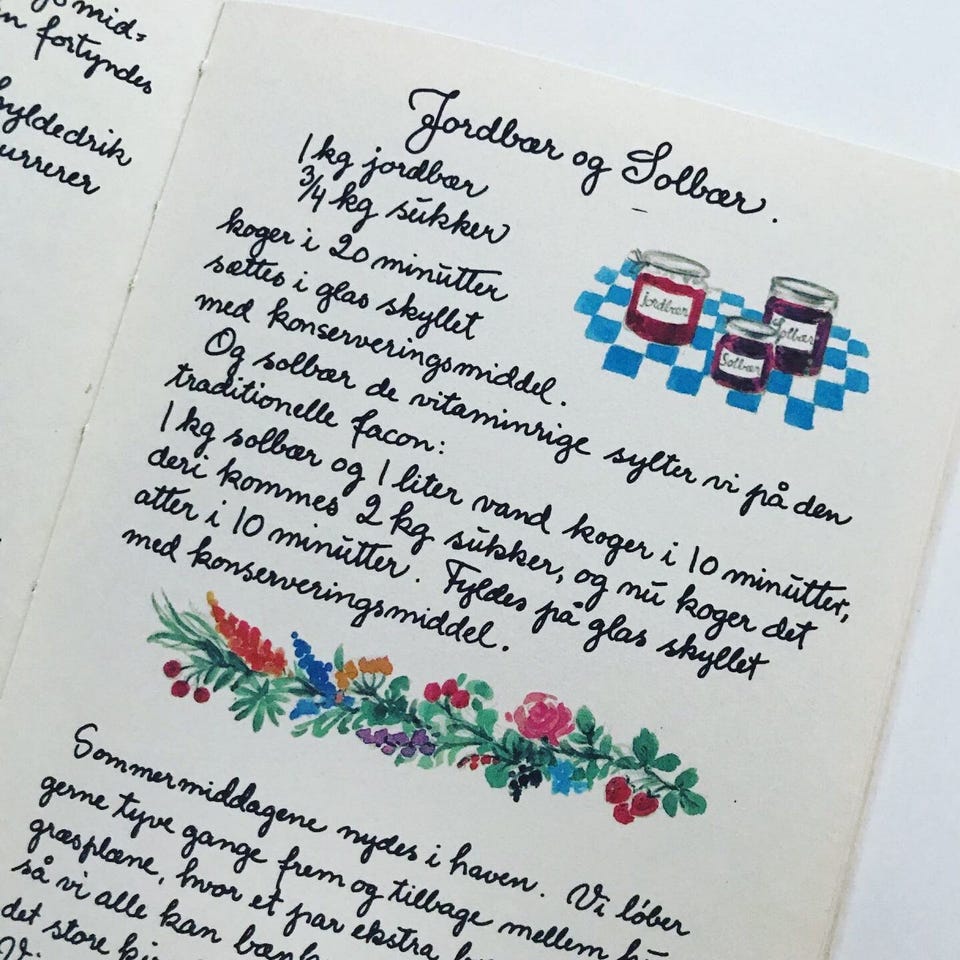 mid=
fortyndes
hyldedrik
Jordbær og Solbær.
1 kg jordbær
3/4 kg sukker
koger i 20 minutter
sættes i glas skyllet
med konserveringsmiddel.
Og solbær de vitaminrige sylter vi på den
traditionelle facon:
1 kg solbær og 1 liter vand koger i 10 minutter,
deri kommes 2 kg sukker, og nu koger det
atter i 10 minutter. Fyldes på glas skyllet
med konserveringsmiddel.
jordbær
Solbær
Solbær
Sommermiddagene nydes i haven. Vi løber
gerne tyve gange frem og tilbage mellem
græsplæne, hvor et par ekstra
så vi alle kan
det store
Vi